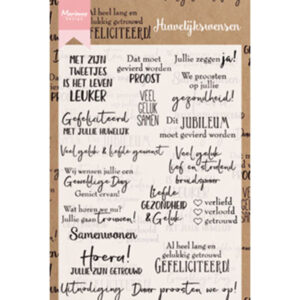 Marianne
Al heel lang en
gelukkig getrouwd
GEFELICITEERD!
Huwelijkswensen
MET ZIJN
TWEETJES
IS HET LEVEN
LEUKER
Dat moet
gevierd worden
PROOST
Jullie zeggen ja!
We proosten
op jullie
gezondheid!
VEEL
GELUK
SAMEN
Gefeliciteerd
MET JULLIE HUWELIJK
Dit JUBILEUM
moet gevierd worden
Veel geluk & liefde gewenst
Veel geluk
lief en stralend
bruidspaar
Wij wensen jullie een
Geweldige Dag
Geniet ervan!
Liefde
GEZONDHEID
& Geluk
verliefd
verloofd
getrouwd
Wat horen we nu?
Jullie gaan trouwen!
Samenwonen
Hoera!
JULLIE ZIJN GETROUWD
Al heel lang en
gelukkig getrouwd
GEFELICITEERD!
Uitnodiging
Daar proosten we op!